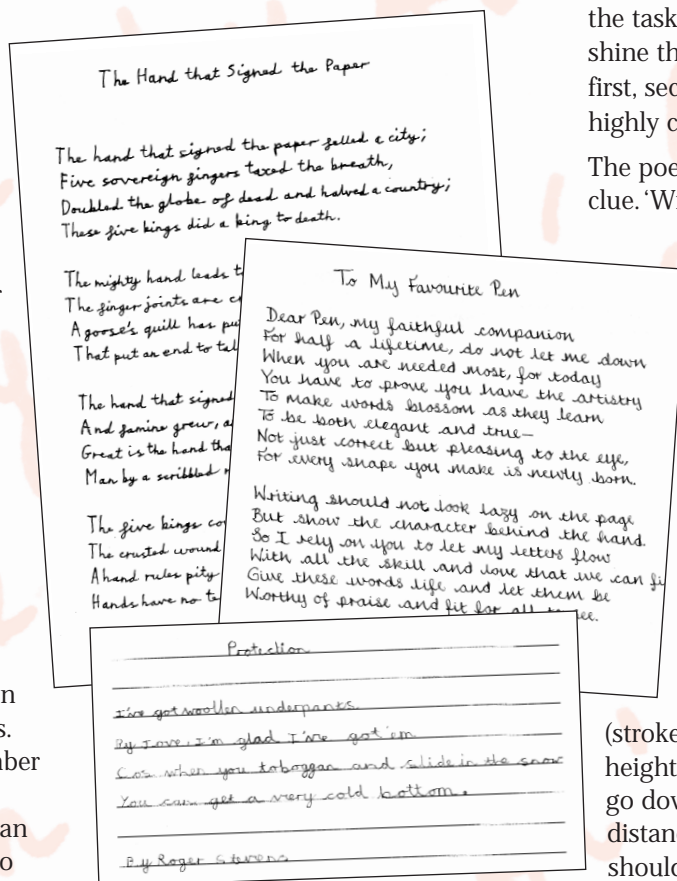 the task
shine th
first, sec
highly c
The poe
clue. ‘Wi
The Hand that Signed the Paper
The hand that signed the paper felled a city;
Five sovereign fingers taxed the breath,
Doubled the globe of dead and halved a country;
These five kings did a king to death.
The mighty hand leads t
The finger joints are c
A goose's quill has pu
That put an end to tal
The hand that signed
And famine grew, a
Great is the hand tha
Man by a scribbled
The five kings co
The crusted wound
A hand rules pity
Hands have no te
To My Favourite Pen
Dear Pen, my faithful companion
For half a lifetime, do not let me down
When you are needed most, for today
You have to prove you have the artistry
To make words blossom as they learn
To be both elegant and true—
Not just correct but pleasing to the eye,
For every shape you make is newly born.
Writing should not look lazy on the page
But show the character behind the hand.
So I rely on you to let my letters flow
With all the skill and love that we can fi
Give these words life and let them be
Worthy of praise and fit for all to see.
Protection
I've got woollen underpants.
By Jove, I'm glad I've got 'em
Cos when you toboggan and slide in the snow
You can get a very cold bottom.
By Roger Stevens
n
s.
ber
an
o
(stroke
height
go dov
distanc
should